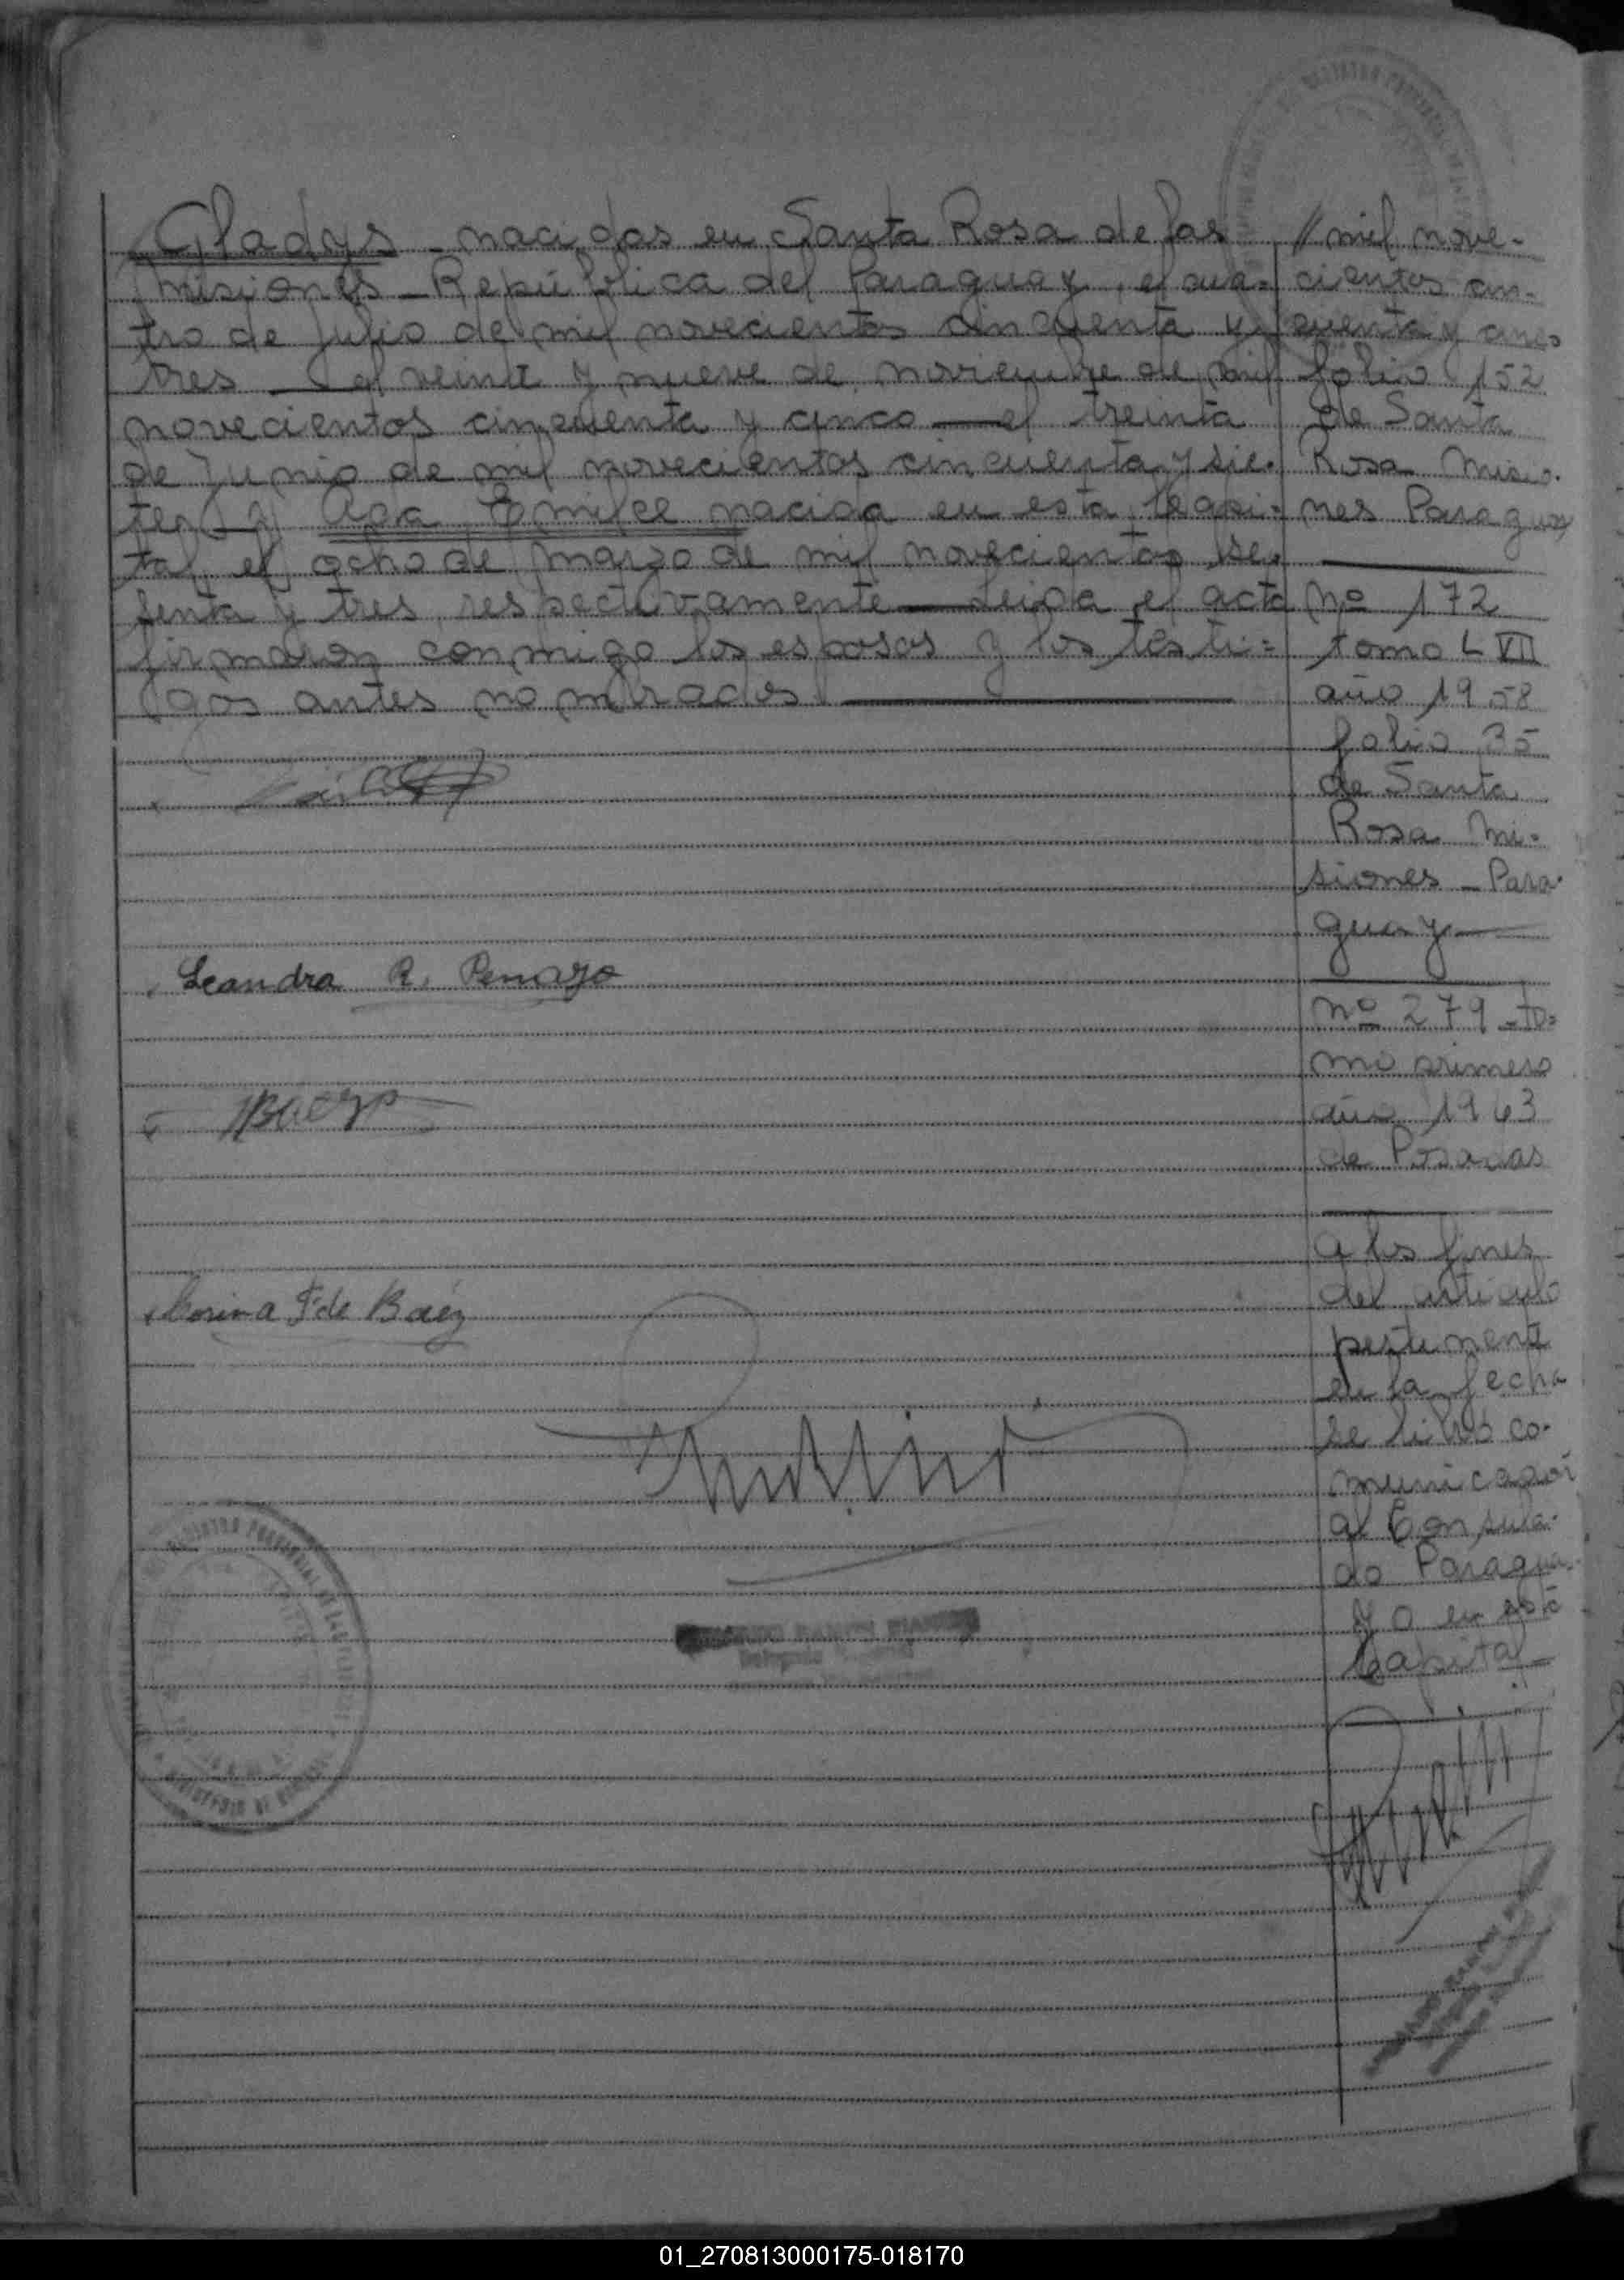 Gladys - nacidas en Santa Rosa de las
Misiones - República del Paraguay, el cua=
tro de Julio de mil novecientos cincuenta y
tres — el veinte y nueve de noviembre de mil
novecientos cincuenta y cinco — el treinta
de Junio de mil novecientos cincuenta y sie-
te — y Ana nacida en esta Capi=
tal, el ocho de marzo de mil novecientos se-
senta y tres, respectivamente — Leida el acta
firmaron conmigo los esposos y los testi=
gos antes nombrados. —
Leandra R. Penayo
Corina F. de Baéz
// mil nove-
cientos cin-
cuenta y cinco
folio 152
de Santa
Rosa Misio-
nes Paraguay
Nº 172
tomo L VII
año 1958
folio 35
de Santa
Rosa Mi-
siones - Para-
guay —
Nº 279 - to=
mo primero
año 1963
de Posadas
A los fines
del articulo
pertinente
en la fecha
se libró co-
municación
al Consula-
do Paragua-
yo en esta
Capital -
01_270813000175-018170